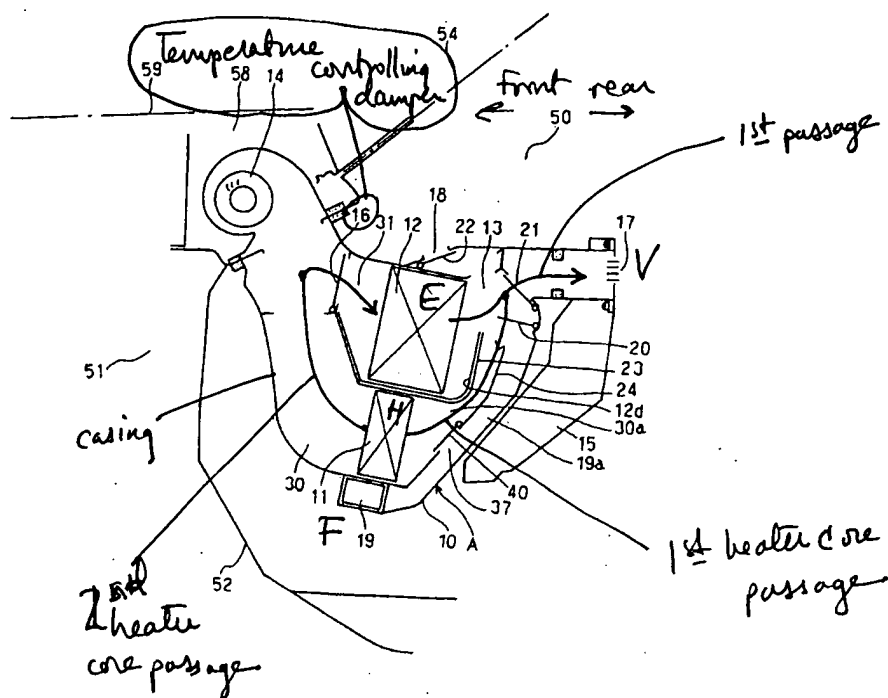 54
Temperature
controlling
damper
59
58
14
Front rear
50
1st passage
16
31
12
18
22
13
21
17
V
E
20
23
24
12d
30a
15
19a
51
casing
H
30
11
19
F
10
A
37
40
52
1st heater core
passage
heater
core passage